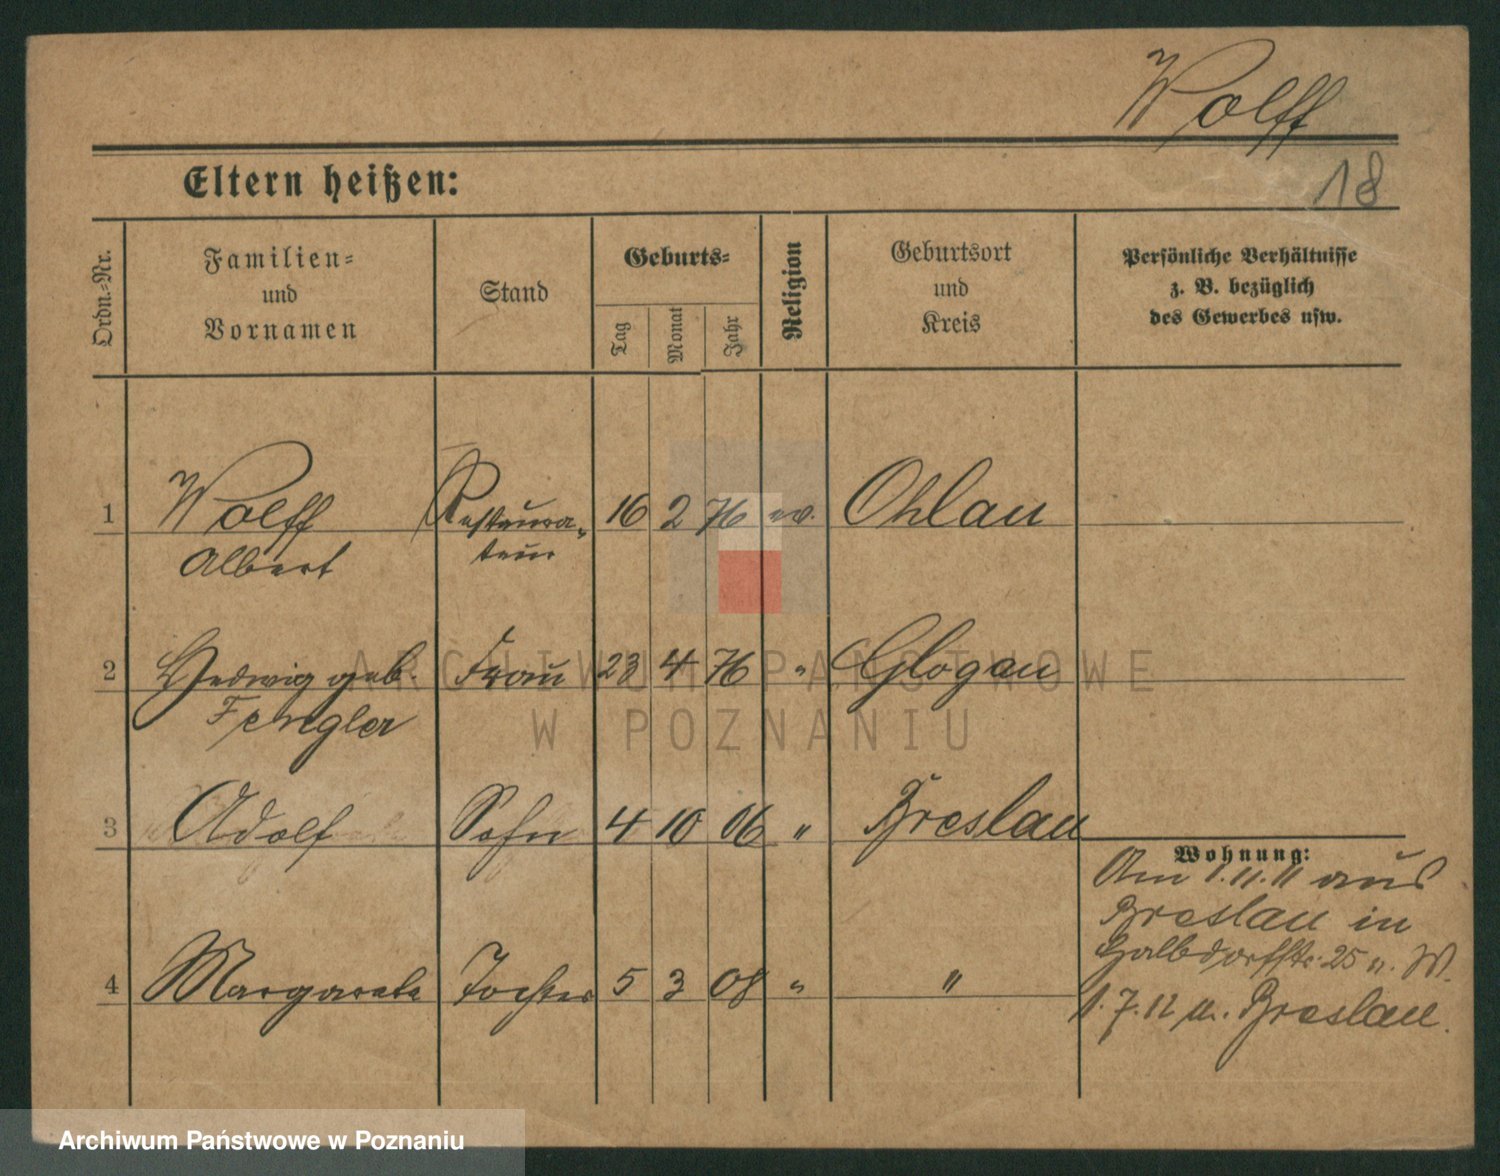 Wolff
18
Eltern heißen:
Ordn.-Nr.
Familien-
und
Vornamen
Stand
Geburts-
Tag
Monat
Jahr
Religion
Geburtsort
und
Kreis
Persönliche Verhältnisse
z. B. bezüglich
des Gewerbes usw.
1 Wolff Restaura- 16 2 76 ev. Ohlau
Albert teur
2 Hedwig geb. Frau 23 4 76 " Glogau
Fengler
3 Adolf Sohn 4 10 06 " Breslau
Wohnung:
Am 1.11.11 aus
Breslau in
Halbdorfstr. 25 n. W.
4 Margarete Tochter 5 3 08 " "
1.7.12 n. Breslau.
ARCHIWUM PAŃSTWOWE
W POZNANIU
Archiwum Państwowe w Poznaniu